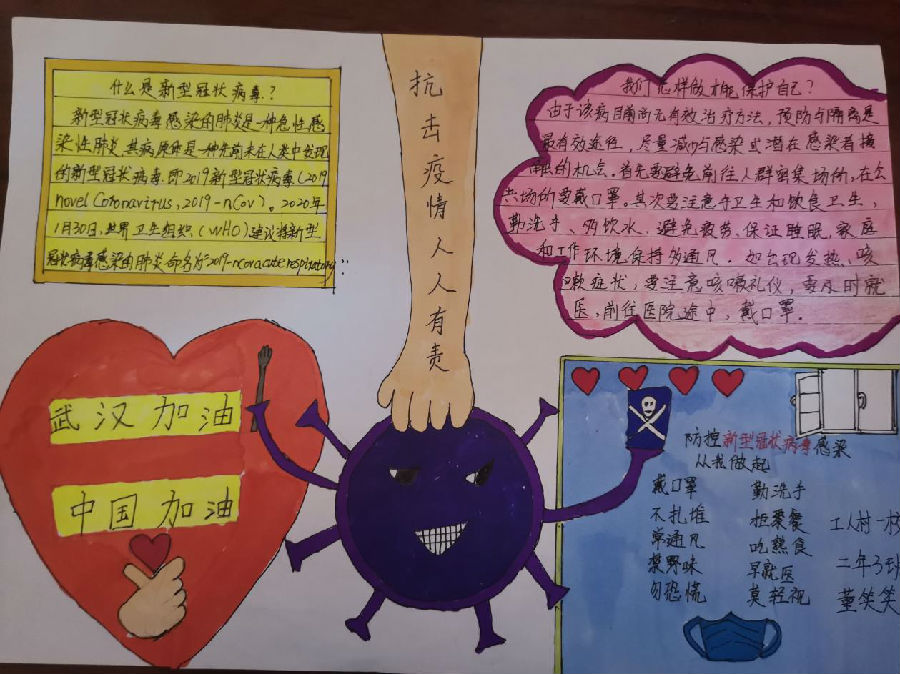 什么是新型冠状病毒？
新型冠状病毒感染的肺炎是一种急性感
染性肺炎，其病原体是一种先前未在人类中发现
的新型冠状病毒，即2019新型冠状病毒（2019
novel Coronavirus, 2019-nCov）。2020年
1月30日，世界卫生组织（WHO）建议将新型
冠状病毒感染的肺炎命名为"2019-ncov acute respiratory
抗击疫情人人有责
我们怎样做才能保护自己？
由于该病目前尚无有效治疗方法，预防与隔离是
最有效途径，尽量减少与感染或潜在感染者接
触的机点。首先要避免前往人群密集场所，在公
共场所要戴口罩。其次要注意手卫生和饮食卫生，
勤洗手、多饮水、避免疲劳、保证睡眠，家庭
和工作环境保持多通风。如出现发热、咳
嗽症状，要注意咳嗽礼仪，要及时就
医，前往医院途中，戴口罩。
武汉加油
中国加油
防控新型冠状病毒感染
从我做起
戴口罩 勤洗手
不扎堆 拒聚餐
常通风 吃熟食
禁野味 早就医
勿恐慌 莫轻视
工人村一校
二年3班
董笑笑